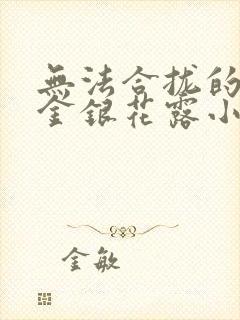 無法合拢的
金銀花露小
金敏